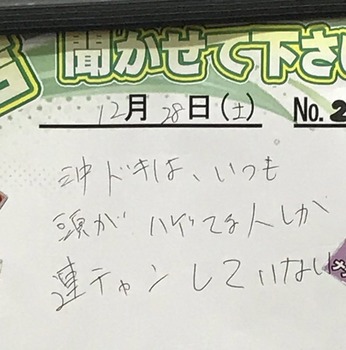 聞かせて下さい
12月28日(土) No. 2
沖ドキは、いつも
頭がハゲてる人しか
連チャンしていない